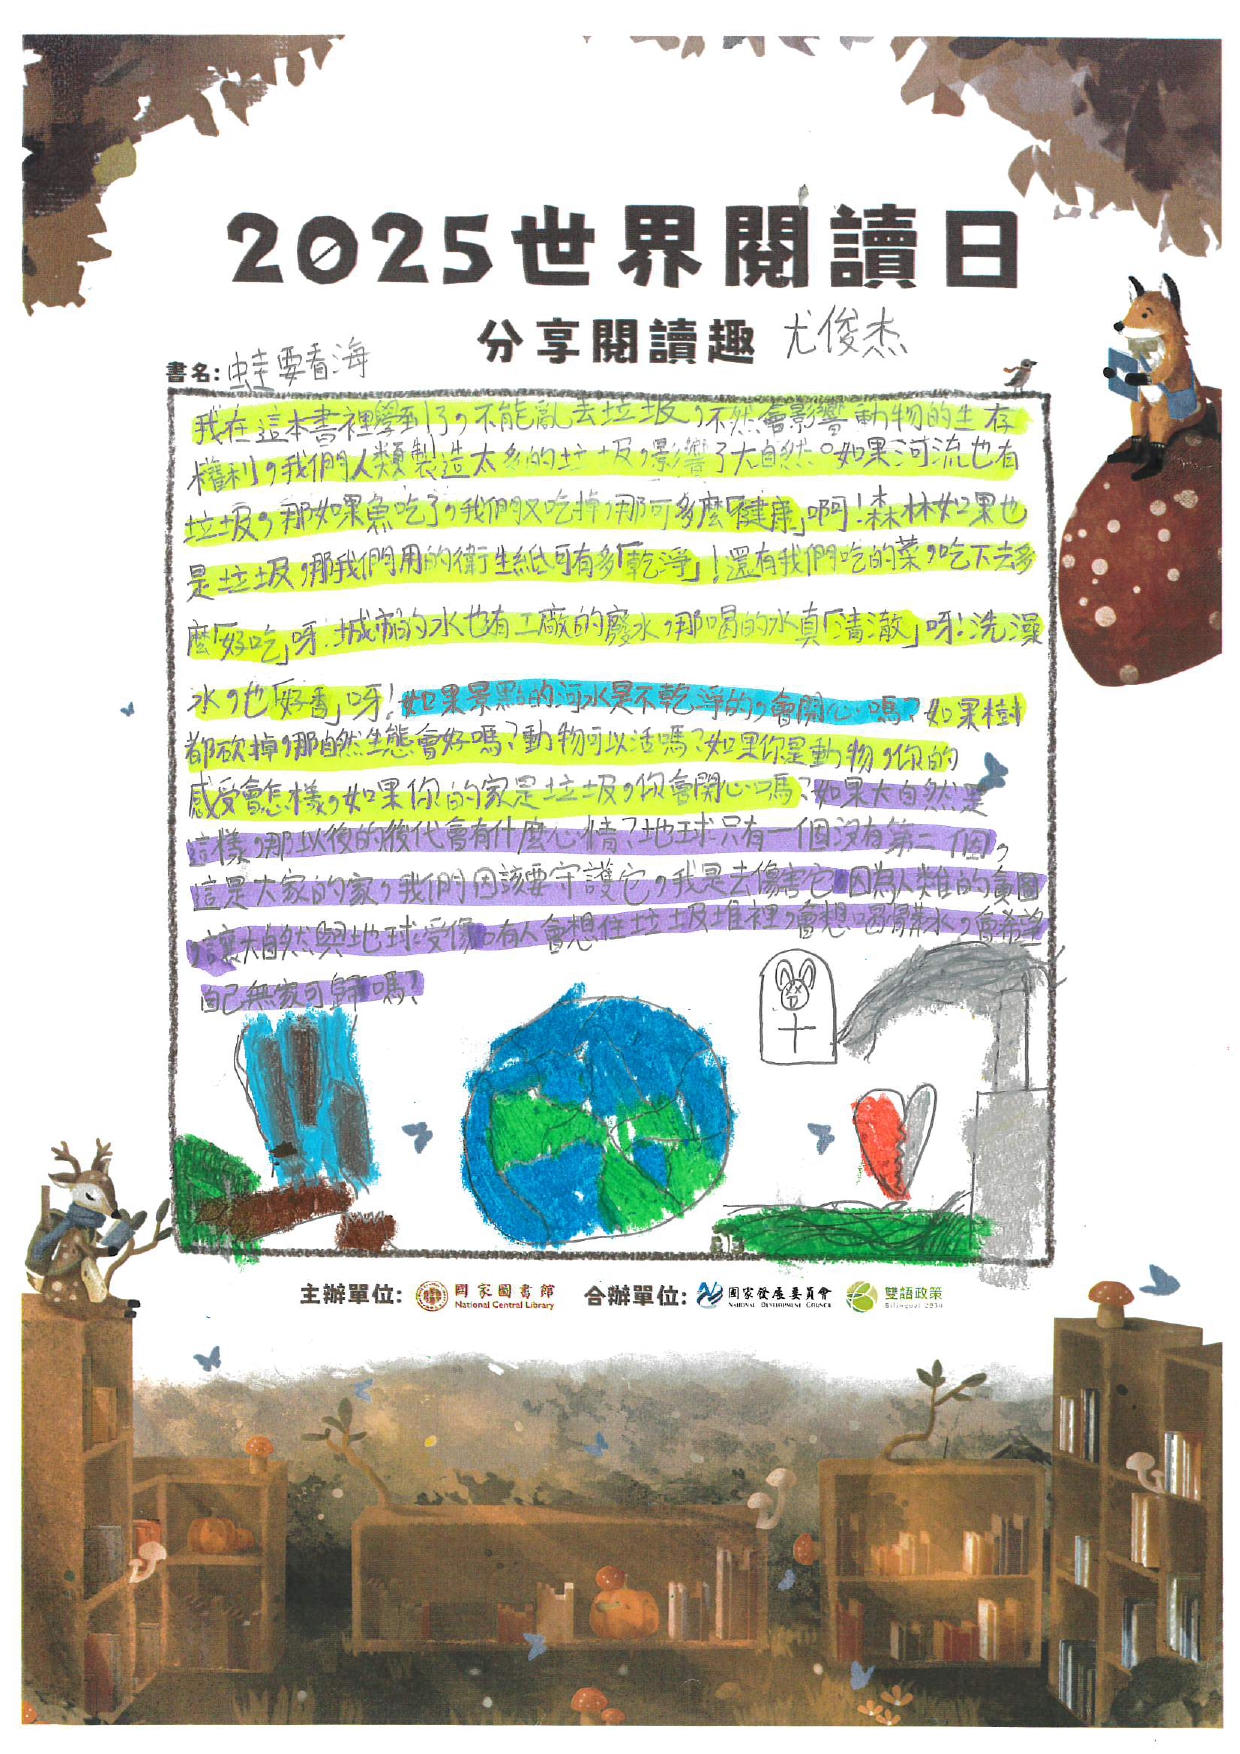 2025世界閱讀日
分享閱讀趣 尤俊杰
書名:蛙要看海
我在這本書裡學到了,不能亂丟垃圾,不然會影響動物的生存
權利,我們人類製造太多的垃圾,影響了大自然。如果河流也有
垃圾,那如果魚吃了,我們又吃掉,那可多麼「健康」啊!森林如果也
是垃圾,那我們用的衛生紙可有多「乾淨」!還有我們吃的菜,吃下去多
麼「好吃」呀!城市的水也有工廠的廢水,那喝的水真「清澈」呀!洗澡
水,也「好香」呀!如果景點的河水是不乾淨的,會開心嗎?如果樹
都砍掉,那自然生態會好嗎?動物可以活嗎?如果你是動物,你的
感受會怎樣,如果你的家是垃圾,你會開心嗎?如果大自然還是
這樣,那以後的後代會有什麼心情?地球只有一個沒有第二個,
這是大家的家,我們因該要守護它,我是去傷害它因為人類的貪圖
,讓大自然與地球受傷。有人會想住垃圾堆裡,會想喝髒水,會希望
自己無家可歸嗎?
主辦單位: 國家圖書館 合辦單位: 國家發展委員會 雙語政策
National Central Library NATIONAL DEVELOPMENT COUNCIL Bilingual 2030